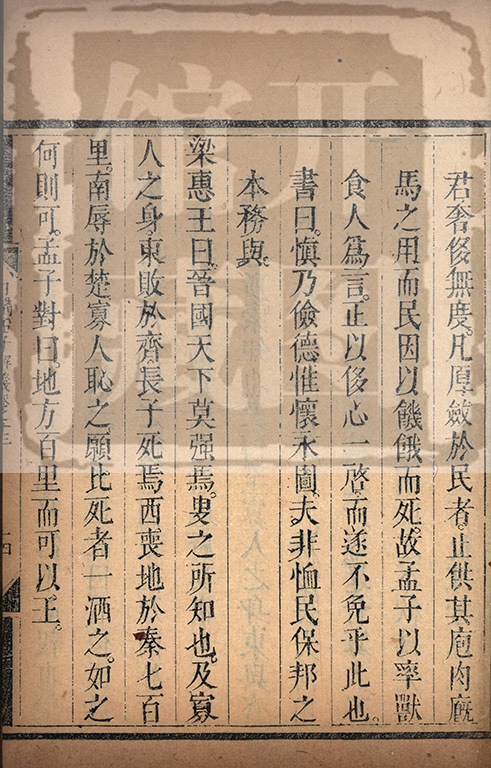 君奢侈無度凡厚斂於民者止供其庖肉廐
馬之用而民因以饑餓而死故孟子以率獸
食人為言正以侈心一啓而遂不免乎此也
書曰慎乃儉德惟懷永圖夫非恤民保邦之
本務與
梁惠王曰晉國天下莫强焉叟之所知也及寡
人之身東敗於齊長子死焉西喪地於秦七百
里南辱於楚寡人恥之願比死者一洒之如之
何則可孟子對曰地方百里而可以王